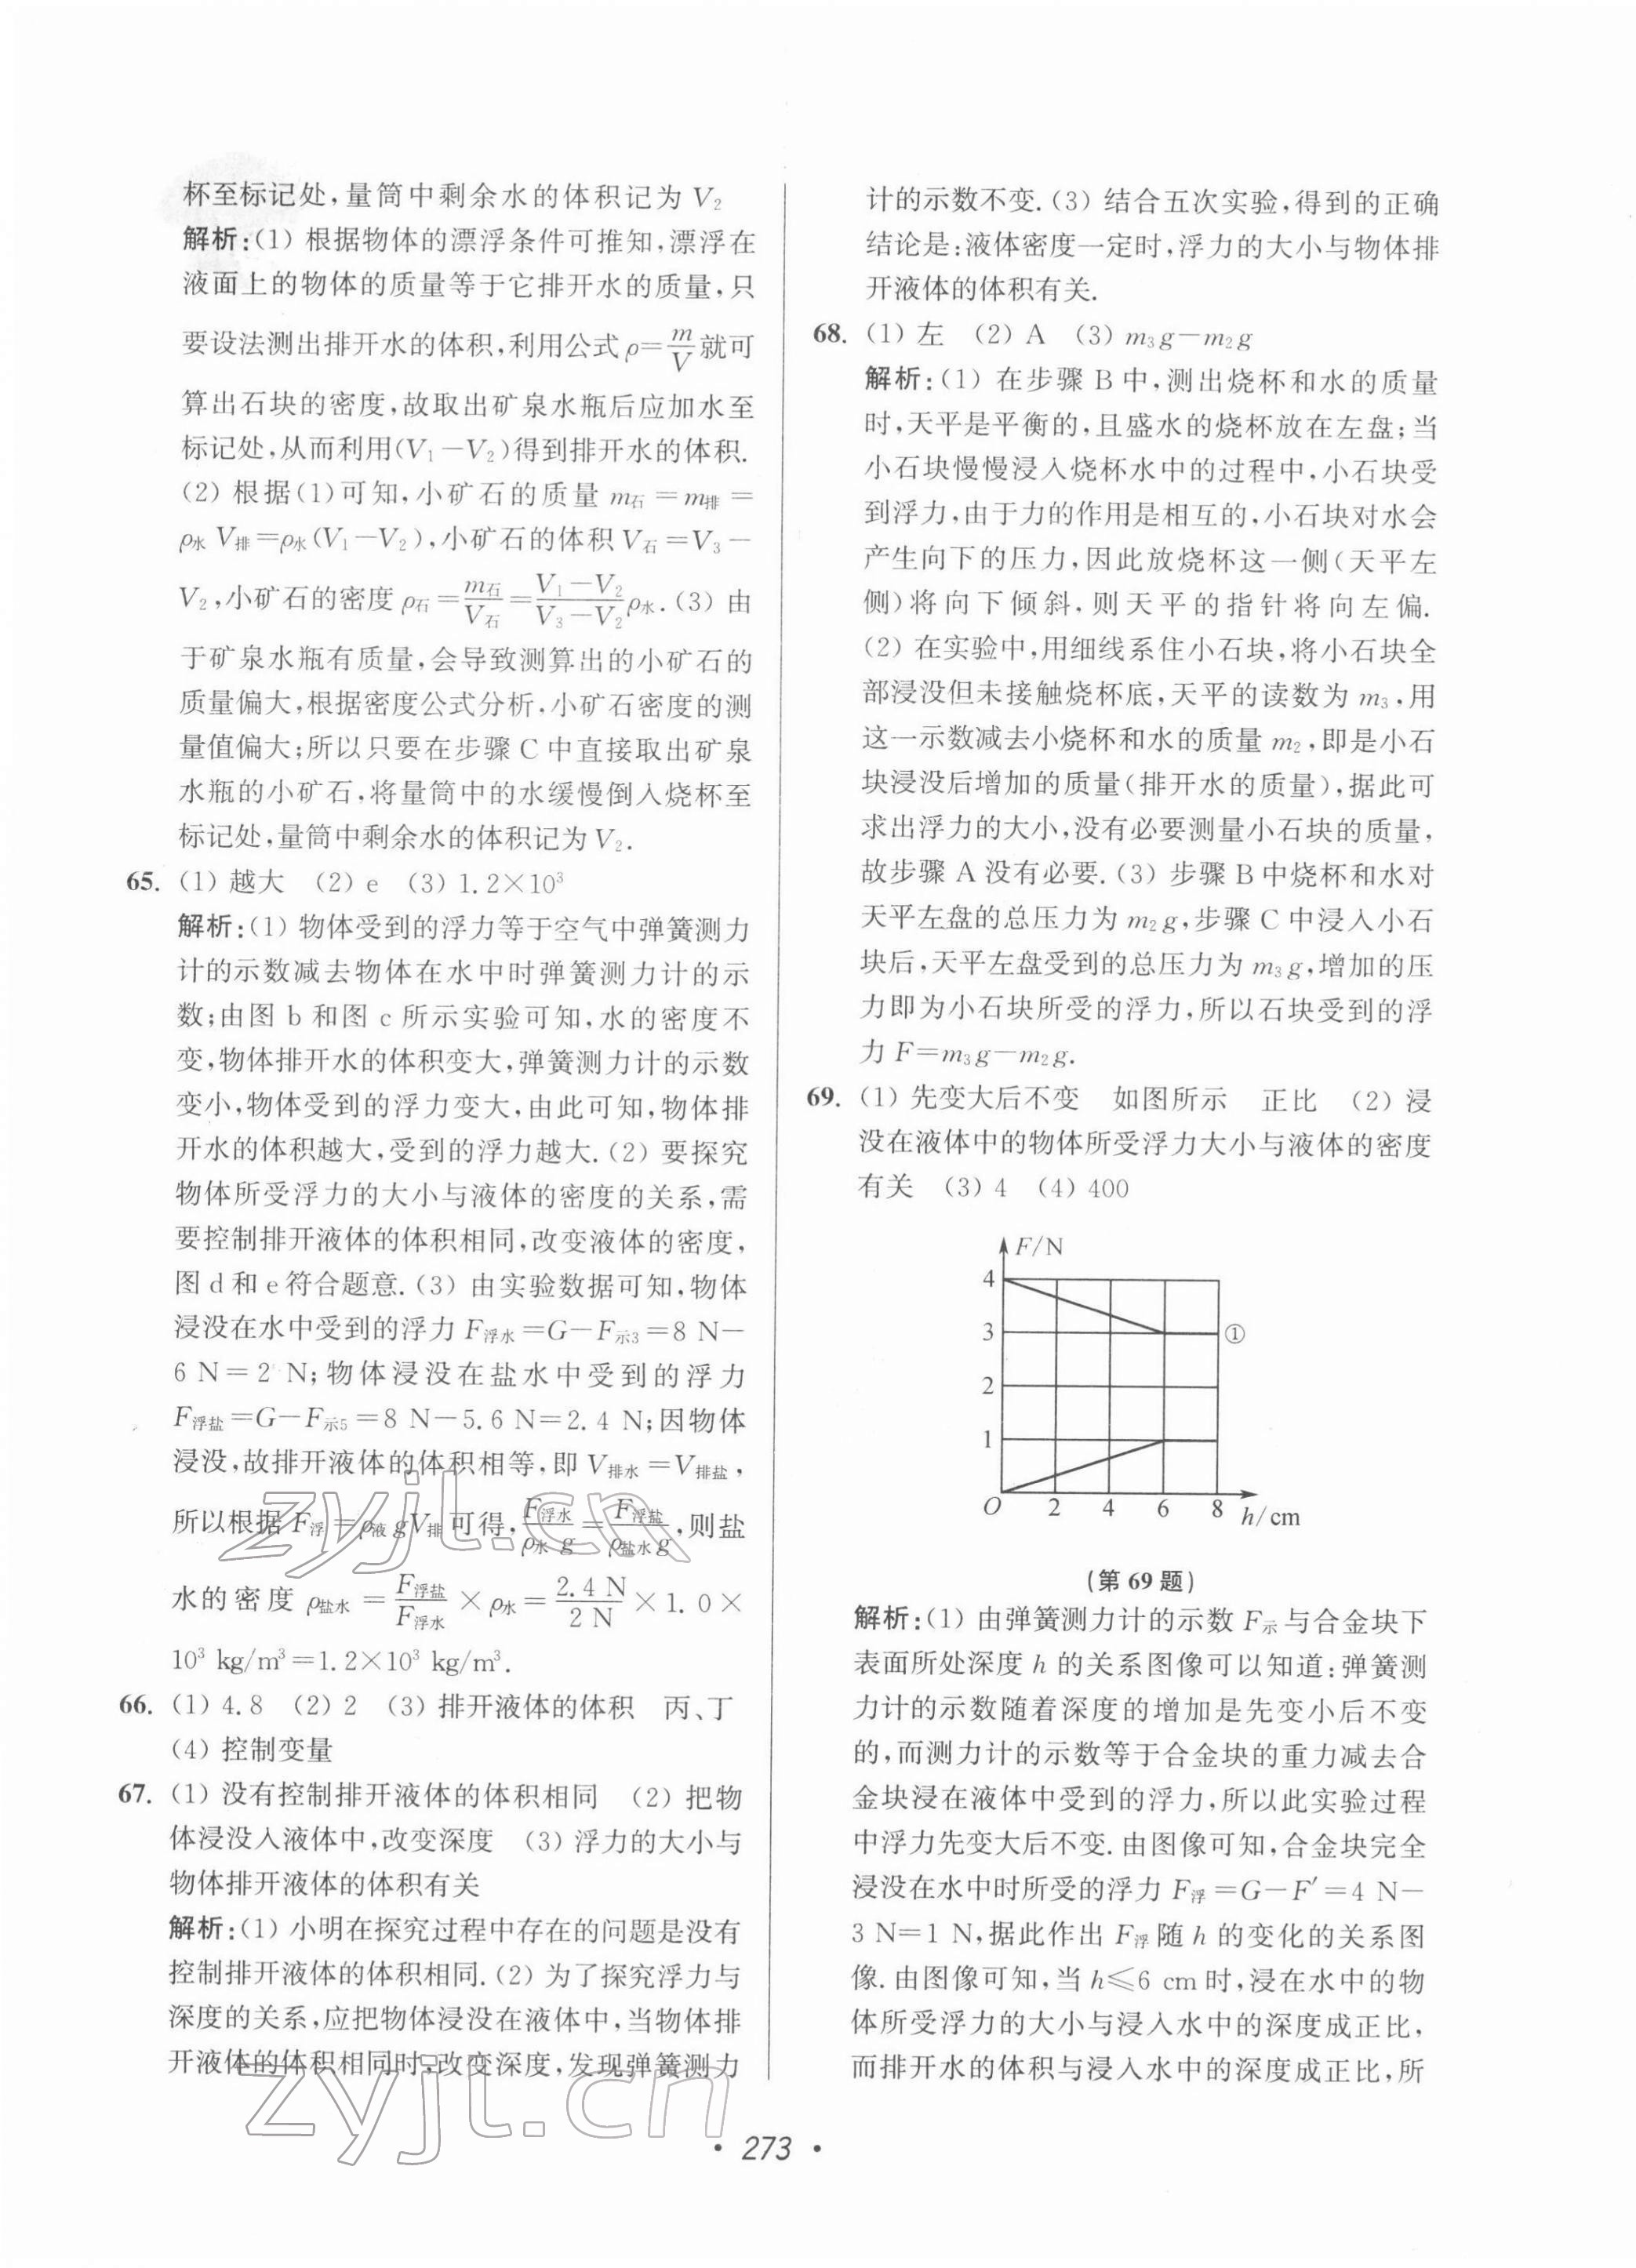 杯至标记处,量筒中剩余水的体积记为 V₂
解析:(1) 根据物体的漂浮条件可推知,漂浮在
液面上的物体的质量等于它排开水的质量,只
要设法测出排开水的体积,利用公式 ρ=m/V 就可
算出石块的密度,故取出矿泉水瓶后应加水至
标记处,从而利用(V₁-V₂)得到排开水的体积.
(2) 根据(1)可知,小矿石的质量 m石=m排=
ρ水 V排=ρ水(V₁-V₂),小矿石的体积 V石=V₃-
V₂,小矿石的密度 ρ石=m石/V石=(V₁-V₂)/(V₃-V₂)ρ水.(3) 由
于矿泉水瓶有质量,会导致测算出的小矿石的
质量偏大,根据密度公式分析,小矿石密度的测
量值偏大;所以只要在步骤 C 中直接取出矿泉
水瓶的小矿石,将量筒中的水缓慢倒入烧杯至
标记处,量筒中剩余水的体积记为 V₂.
65. (1) 越大 (2) e (3) 1.2×10³
解析:(1) 物体受到的浮力等于空气中弹簧测力
计的示数减去物体在水中时弹簧测力计的示
数;由图 b 和图 c 所示实验可知,水的密度不
变,物体排开水的体积变大,弹簧测力计的示数
变小,物体受到的浮力变大,由此可知,物体排
开水的体积越大,受到的浮力越大.(2) 要探究
物体所受浮力的大小与液体的密度的关系,需
要控制排开液体的体积相同,改变液体的密度,
图 d 和 e 符合题意.(3) 由实验数据可知,物体
浸没在水中受到的浮力 F浮水=G-F示3=8 N-
6 N=2 N;物体浸没在盐水中受到的浮力
F浮盐=G-F示5=8 N-5.6 N=2.4 N;因物体
浸没,故排开液体的体积相等,即 V排水=V排盐,
所以根据 F浮=ρ液 gV排 可得,F浮水/ρ水 g=F浮盐/ρ盐水 g,则盐
水的密度 ρ盐水=F浮盐/F浮水×ρ水=2.4 N/2 N×1.0×
10³ kg/m³=1.2×10³ kg/m³.
66. (1) 4.8 (2) 2 (3) 排开液体的体积 丙、丁
(4) 控制变量
67. (1) 没有控制排开液体的体积相同 (2) 把物
体浸没入液体中,改变深度 (3) 浮力的大小与
物体排开液体的体积有关
解析:(1) 小明在探究过程中存在的问题是没有
控制排开液体的体积相同.(2) 为了探究浮力与
深度的关系,应把物体浸没在液体中,当物体排
开液体的体积相同时,改变深度,发现弹簧测力
计的示数不变.(3) 结合五次实验,得到的正确
结论是:液体密度一定时,浮力的大小与物体排
开液体的体积有关.
68. (1) 左 (2) A (3) m₃g-m₂g
解析:(1) 在步骤 B 中,测出烧杯和水的质量
时,天平是平衡的,且盛水的烧杯放在左盘;当
小石块慢慢浸入烧杯水中的过程中,小石块受
到浮力,由于力的作用是相互的,小石块对水会
产生向下的压力,因此放烧杯这一侧(天平左
侧)将向下倾斜,则天平的指针将向左偏.
(2) 在实验中,用细线系住小石块,将小石块全
部浸没但未接触烧杯底,天平的读数为 m₃,用
这一示数减去小烧杯和水的质量 m₂,即是小石
块浸没后增加的质量(排开水的质量),据此可
求出浮力的大小,没有必要测量小石块的质量,
故步骤 A 没有必要.(3) 步骤 B 中烧杯和水对
天平左盘的总压力为 m₂g,步骤 C 中浸入小石
块后,天平左盘受到的总压力为 m₃g,增加的压
力即为小石块所受的浮力,所以石块受到的浮
力 F=m₃g-m₂g.
69. (1) 先变大后不变 如图所示 正比 (2) 浸
没在液体中的物体所受浮力大小与液体的密度
有关 (3) 4 (4) 400
F/N
4
3
①
2
1
O 2 4 6 8 h/cm
(第 69 题)
解析:(1) 由弹簧测力计的示数 F示与合金块下
表面所处深度 h 的关系图像可以知道:弹簧测
力计的示数随着深度的增加是先变小后不变
的,而测力计的示数等于合金块的重力减去合
金块浸在液体中受到的浮力,所以此实验过程
中浮力先变大后不变.由图像可知,合金块完全
浸没在水中时所受的浮力 F浮=G-F′=4 N-
3 N=1 N,据此作出 F浮随 h 的变化的关系图
像.由图像可知,当 h≤6 cm 时,浸在水中的物
体所受浮力的大小与浸入水中的深度成正比,
而排开水的体积与浸入水中的深度成正比,所
zyjl.cn
zyjl.cn
• 273 •